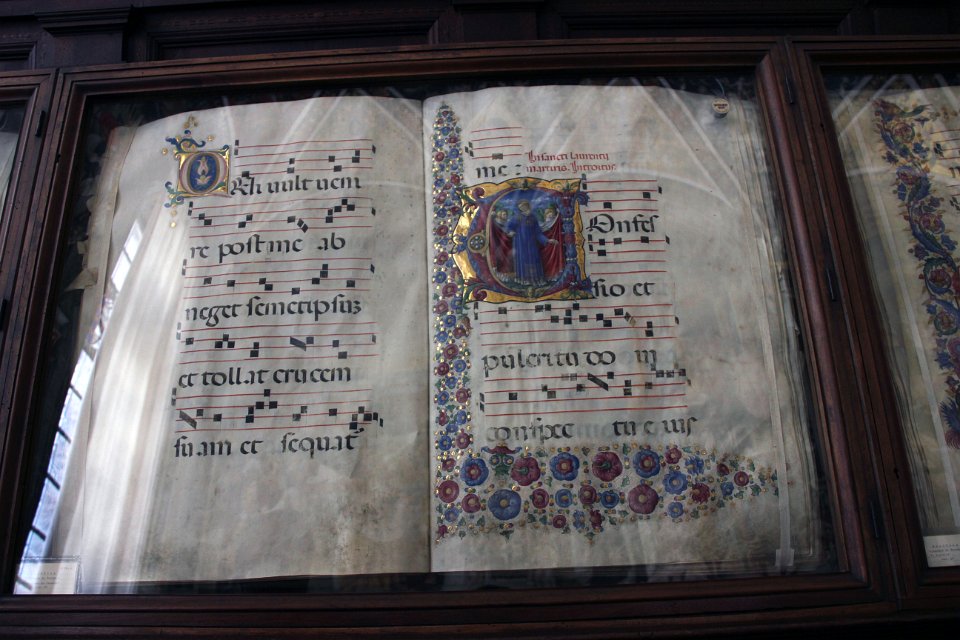 Qui vult veni
re post me ab
neget semetipsuz
et tollat crucem
suam et sequat
me
In sancti laurentii
martiris. Introitus
Confes
sio et
pulcritudo in
conspectu eius